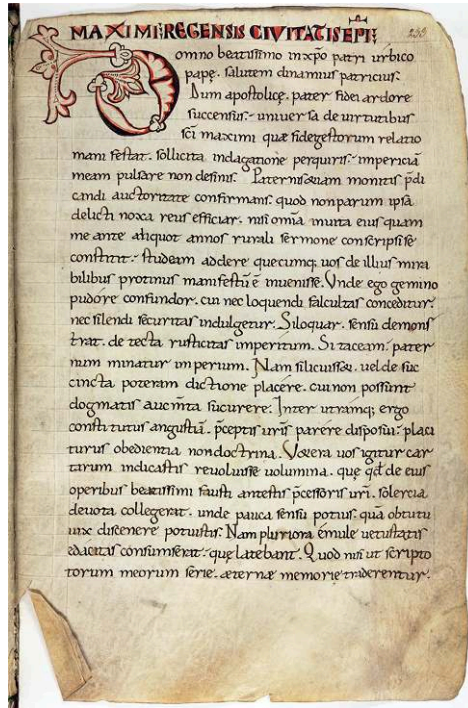 MAXIMI: REGENSIS CIVITATIS EP̅I:
Domno beatissimo in xp̅o patri urbico
papę. salutem dinamius patricius.
Dum apostolicę. pater fidei ardore
succensus. universa de virtutibus
sc̅i maximi quae fide gestorum relatio
manifestat. sollicita indagatione perquiris. impericiā
meam pulsare non desinis. Paternis quam monitis p̅di
candi auctoritate confirmans. quod non parum ipsa
delicti noxa reus efficiar. nisi om̅ia multa eius quam
me ante aliquot annos rurali sermone conscripsisse
constitit. studeam addere quecumq; vos de illius mira
bilibus protinus manifestū ē invenisse. Unde ego gemino
pudore confundor. cui nec loquendi facultas conceditur.
nec silendi securitas indulgetur. Si loquar. sensū demons
trat. detecta rusticitas imperitum. Si taceam. pater
num minatur imperium. Nam si licuisset. vel de suc
cincta poteram dictione placere. cui non possunt
dogmatis aucm̅ta sucurere. Inter utramq; ergo
constitutus angustiā. p̅ceptis ur̅is parere disposui. placi
turus obedientia non doctrina. Verera vos igitur car
tarum indicastis revoluisse volumina. quę qd̅ de eius
operibus beatissimi fausti antestis p̅cessoris ur̅i. solercia
devota collegerat. unde pauca sensu potius. quā obtutu
vix discenere potuistis. Nam pluriora emule vetustatis
edacitas consumserat. quę latebant. Quod nisi ut scripto
torum meorum serie. aeternae memorie traderentur.